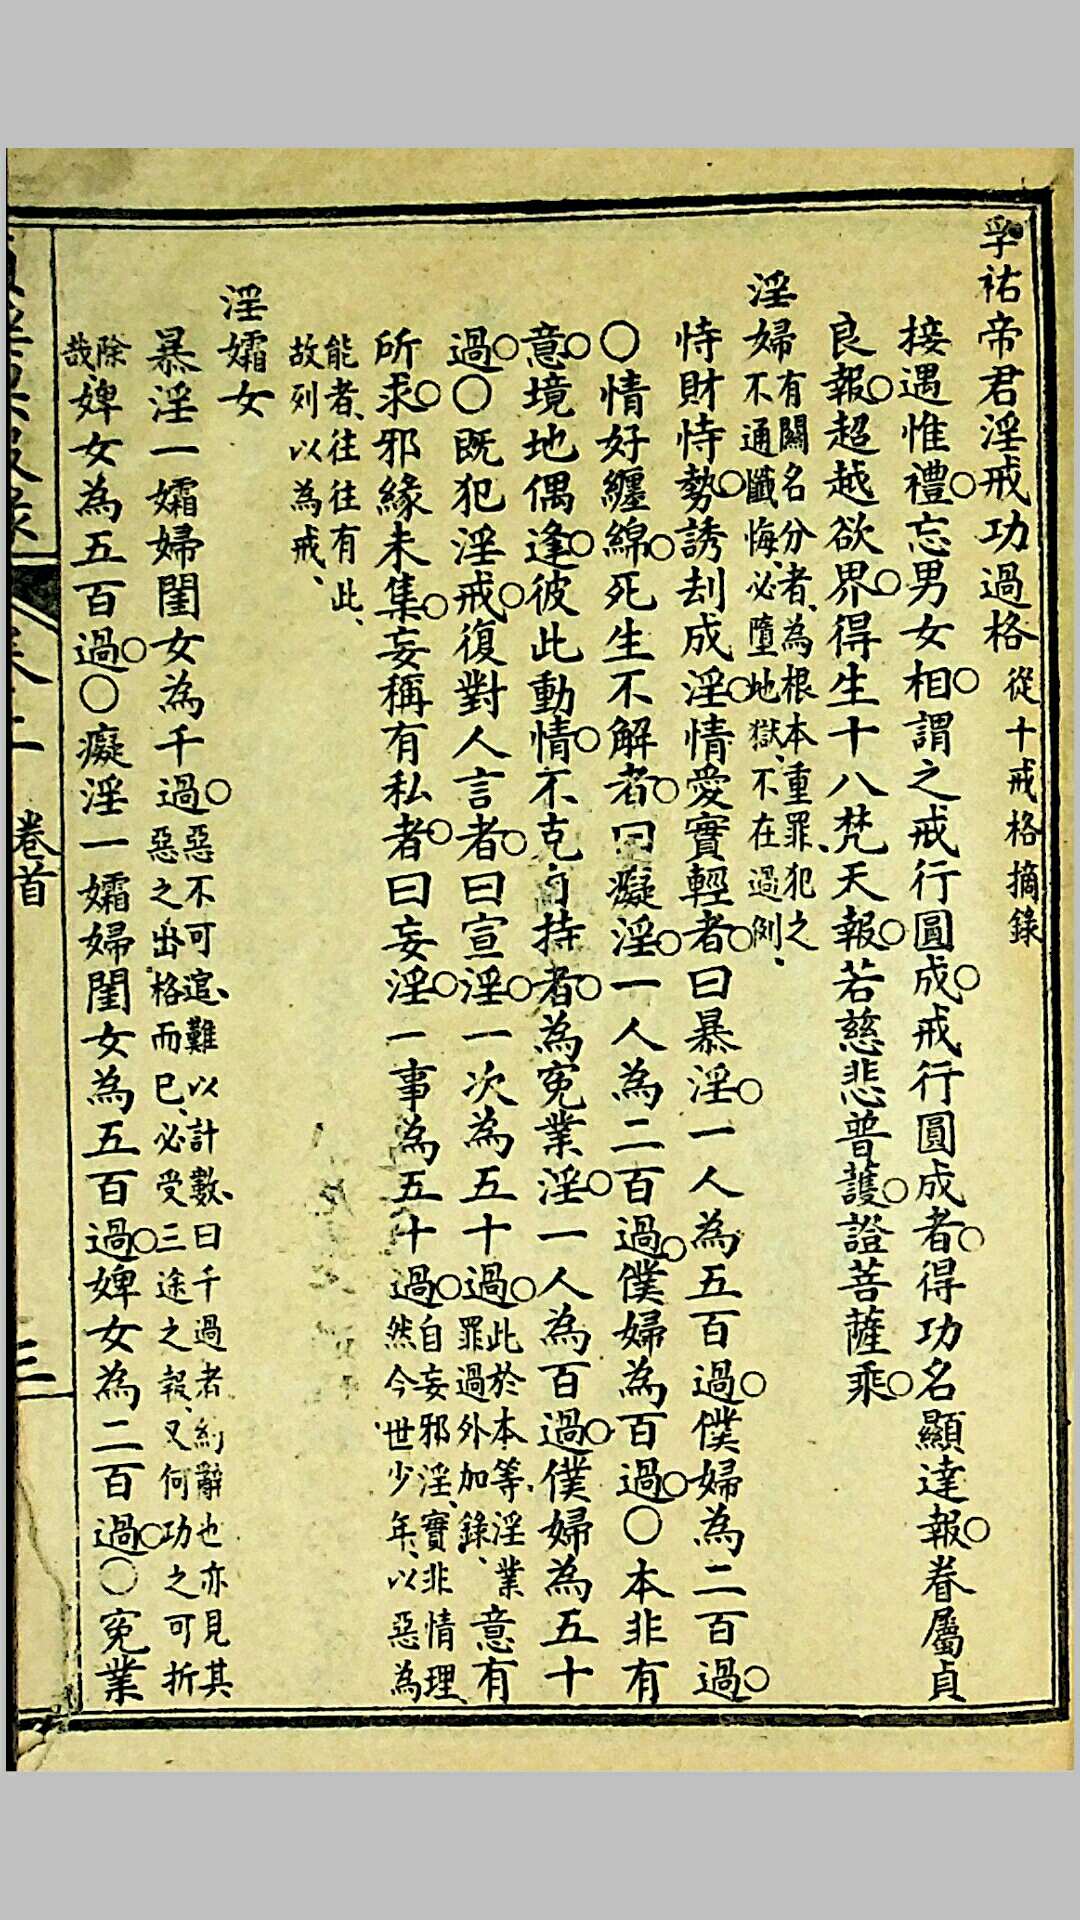 孚祐帝君淫戒功過格從十戒格摘錄
接遇惟禮忘男女相謂之戒行圓成戒行圓成者得功名顯達報眷屬貞
良報超越欲界得生十八梵天報若慈悲普護證菩薩乘
淫婦有關名分者為根本重罪犯之
不通懺悔必墮地獄不在過例
恃財恃勢誘刦成淫情愛實輕者曰暴淫一人為五百過僕婦為二百過
○情好纏綿死生不解者曰癡淫一人為二百過僕婦為百過○本非有
意境地偶逢彼此動情不克自持者為寃業淫一人為百過僕婦為五十
過○既犯淫戒復對人言者曰宣淫一次為五十過此於本等淫業
罪過外加錄意有
所求邪緣未集妄稱有私者曰妄淫一事為五十過自妄邪淫實非情理
然今世少年以惡為
能者往往有此
故列以為戒
淫孀女
暴淫一孀婦閨女為千過惡不可逭難以計數曰千過者約辭也亦見其
惡之出格而已必受三途之報又何功之可折
除
哉婢女為五百過○癡淫一孀婦閨女為五百過婢女為二百過○寃業
卷首
三